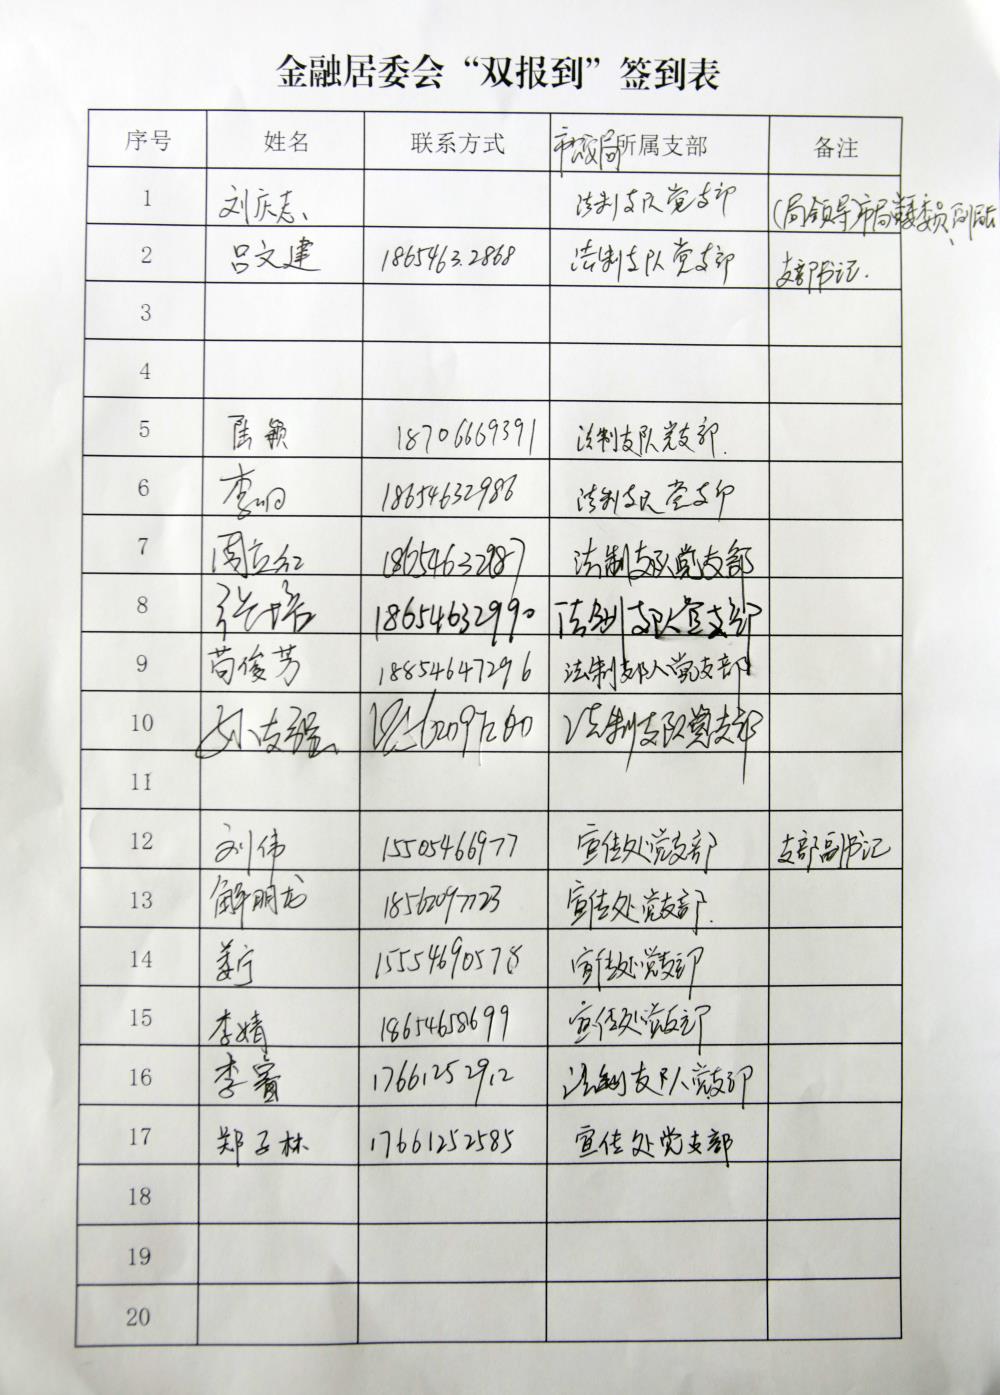 金融居委会“双报到”签到表
序号 姓名 联系方式 市公安局所属支部 备注
1 刘庆志 法制支队党支部 (局领导)市局党委委员、副局长
2 吕文建 18654632868 法制支队党支部 支部书记.
3
4
5 陆敏 18706669391 法制支队党支部.
6 李明 18654632986 法制支队党支部
7 周立红 18654632987 法制支队党支部
8 张培 18654632990 法制支队党支部
9 苟俊芳 18854647296 法制支队党支部
10 法制支队党支部
11
12 刘伟 15505466977 宣传处党支部 支部副书记
13 解明龙 18562097723 宣传处党支部.
14 姜宁 15554690578 宣传处党支部
15 李婧 18654658699 宣传处党支部
16 李蜜 17661252912 法制支队党支部
17 郑子林 17661252585 宣传处党支部
18
19
20